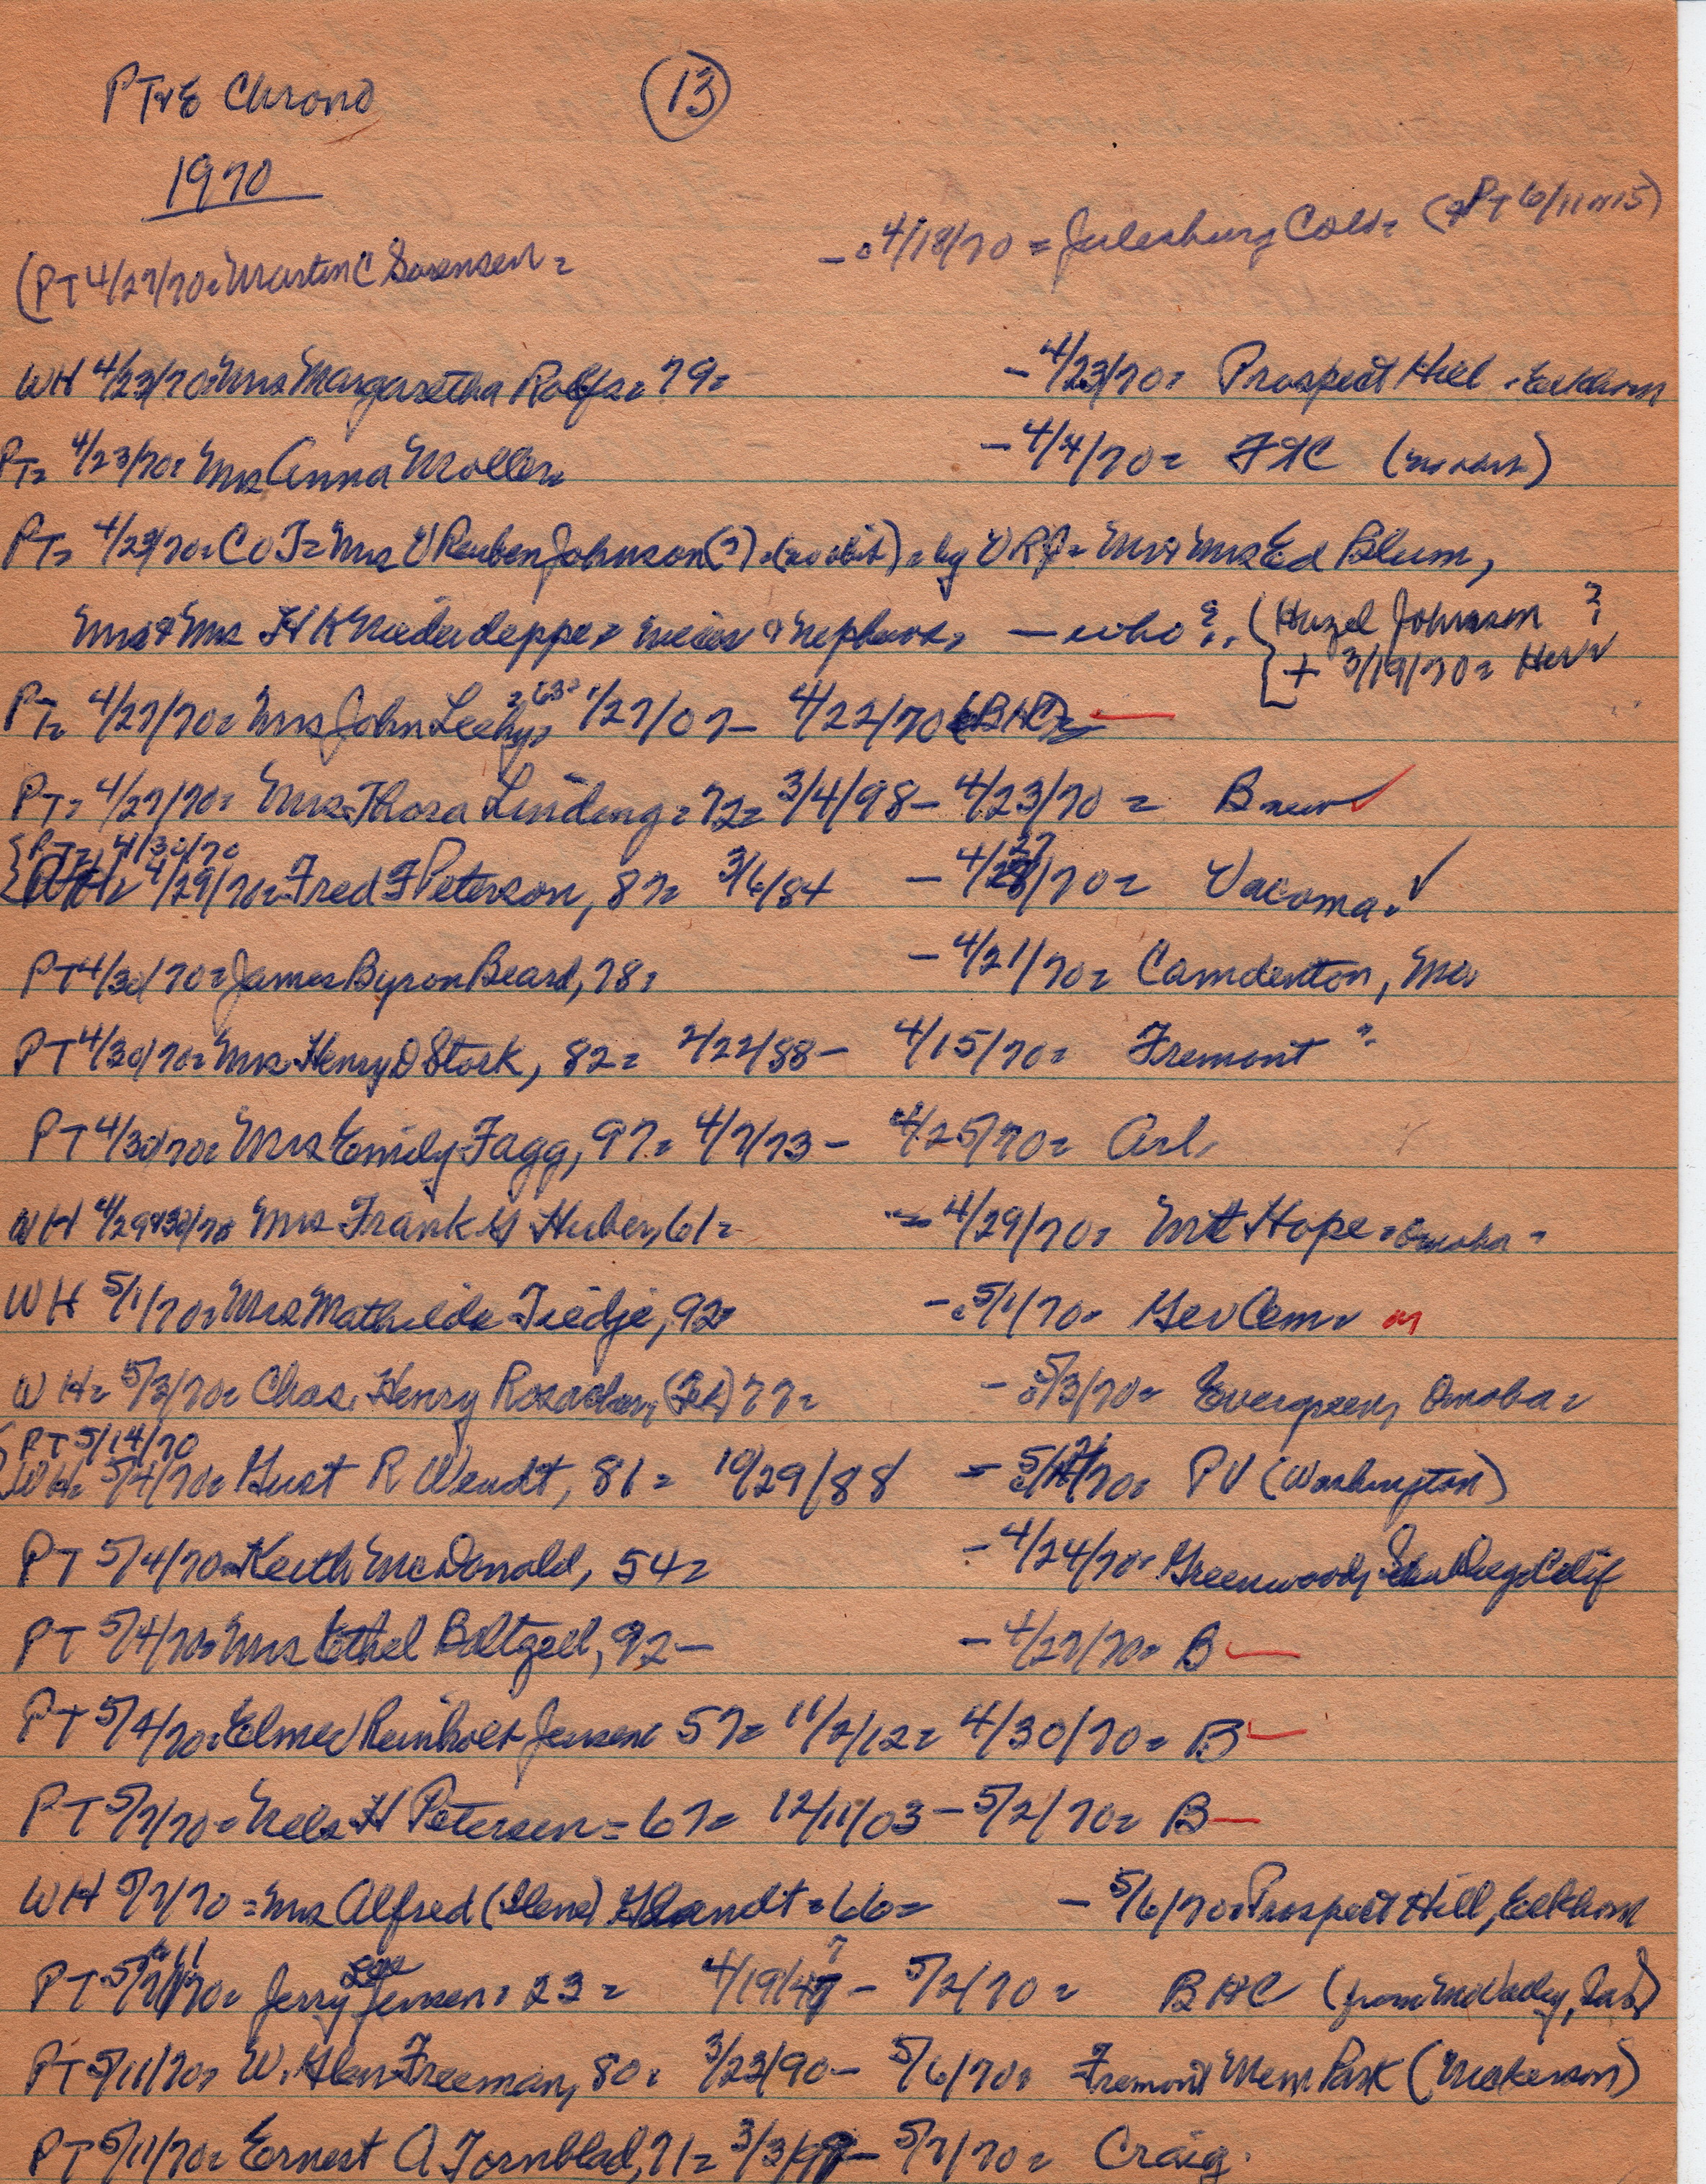 PT&E Chrono (13)
1970
(PT 4/27/70= Martin C Sorensen = - 4/18/70 = Julesburg Colo = (PT 6/11 or 15)
WH 4/23/70= Mrs Margaretha Rolfs= 79= - 4/23/70= Prospect Hill Elkhorn
PT= 4/23/70= Mrs Anna Moller= - 4/4/70= FHC
PT= 4/29/70= C of T= Mrs V Reuben Johnson(?) =(no obit) = by VRJ= Mr & Mrs Ed Blum,
Mr & Mrs H K Niederdeppe= nieces & nephews, - who? (Hazel Johnson ?
+ 3/19/70= Her=
PT= 4/27/70= Mrs John Leehy, =63= 1/27/07 - 4/22/70 (BHC)=
PT= 4/27/70= Mrs Thora Linding= 72= 3/4/98 - 4/23/70 = B new
PT= 4/30/70
WH= 4/29/70= Fred F Peterson, 87= 3/6/84 - 4/27/70= Vacoma.
PT 4/30/70= James Byron Beard, 78= - 4/21/70= Camdenton, Mo
PT 4/30/70= Mrs Henry D Stork, 82= 2/22/88 - 4/15/70= Fremont
PT 4/30/70= Mrs Emily Fagg, 97= 4/7/73 - 4/25/70= Arl.
WH 4/29&30/70 Mrs Frank G Huber, 61= - 4/29/70= Mt Hope = Omaha
WH 5/1/70= Mrs Mathilda Tiedje, 92= - 5/1/70= Ger Cem=
WH= 5/3/70= Chas. Henry Rosacker, 77= - 5/3/70= Evergreen, Omaha=
PT 5/14/70
WH= 5/4/70= Gust R Wendt, 81= 10/29/88 - PV (Washington)
PT 5/4/70= Keith McDonald, 54= - 4/24/70= Greenwood, San Diego Calif
PT 5/4/70= Mrs Ethel Baltzell, 92- - 4/27/70= B
PT 5/4/70= Elmer Reinholt Jensen 57= 11/2/12= 4/30/70= B
PT 5/7/70= Nels H Petersen= 67= 12/11/03 - 5/2/70= B
WH 5/7/70 = Mrs Alfred (Ilene) Glandt= 66= - 5/6/70= Prospect Hill, Elkhorn
PT 5/7&11/70= Jerry Lee Jensen= 23 = 4/19/47 - 5/2/70= BHC (from
PT 5/11/70= W. Glen Freeman, 80= 3/23/90 - 5/6/70= Fremont Mem Park (Nickerson)
PT 5/11/70= Ernest A Tornblad, 71= 3/3/99 - 5/7/70= Craig.